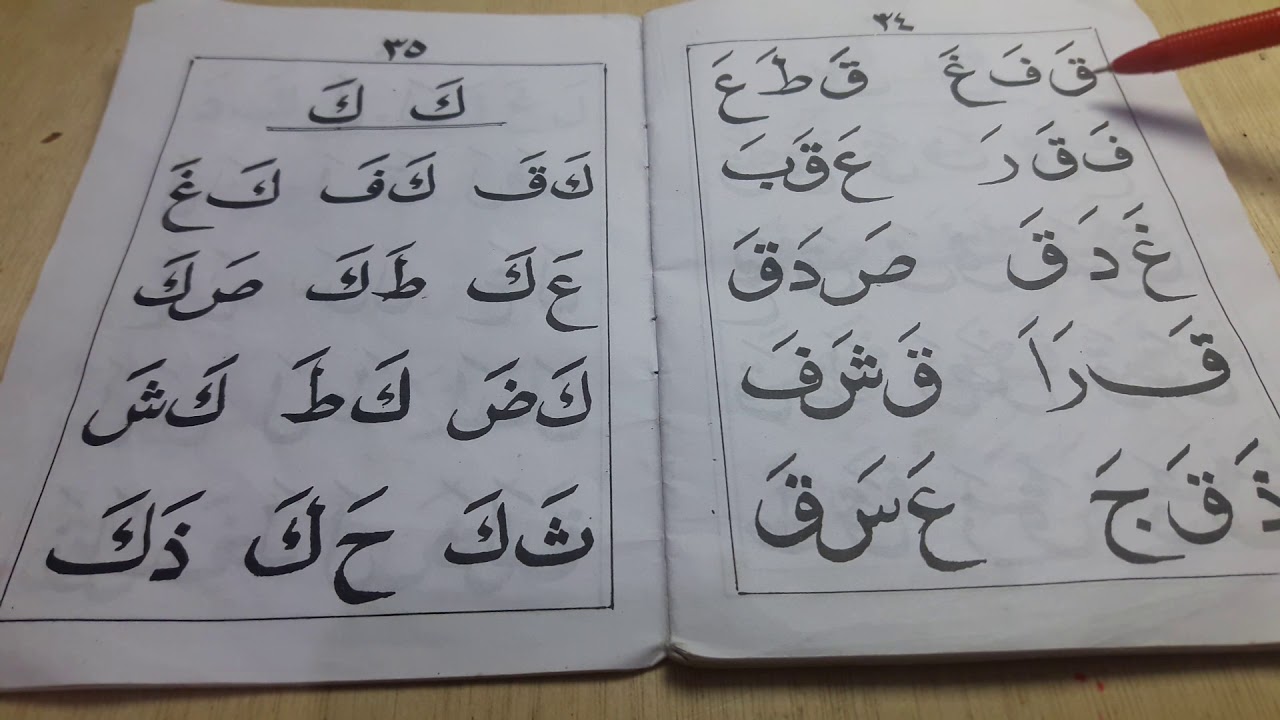 ٣٤
قَ فَ غَ قَ طَ عَ
فَ قَ رَ عَ قَ بَ
غَ دَ قَ صَ دَ قَ
قَ رَ اَ قَ شَ فَ
ذَ قَ جَ عَ سَ قَ
٣٥
كَ كَ
كَ قَ كَ فَ كَ غَ
عَ كَ طَ كَ صَ كَ
كَ ضَ كَ طَ كَ شَ
ثَ كَ حَ كَ ذَ كَ